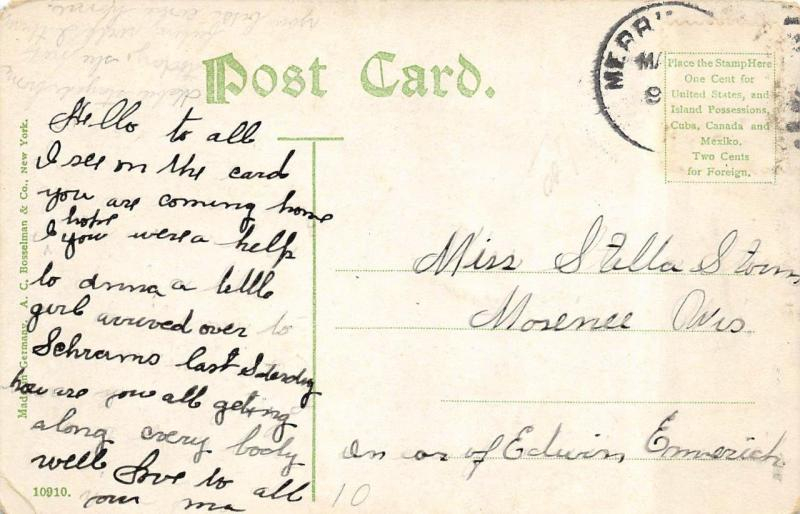 Post Card.
MERR
MA
9
Place the Stamp Here
One Cent for
United States, and
Island Possessions,
Cuba, Canada and
Mexiko.
Two Cents
for Foreign.
Made in Germany, A. C. Bosselman & Co., New York.
Hello to all
I see on the card
you are coming home
I hope you were a help
to Anna a little
girl arrived over to
Schrams last Saterday
how are you all geting
along every body
well love to all
your ma
Miss Stella Storm
Mosenee Wis
in car of Edwin Emmerich
10910.
10